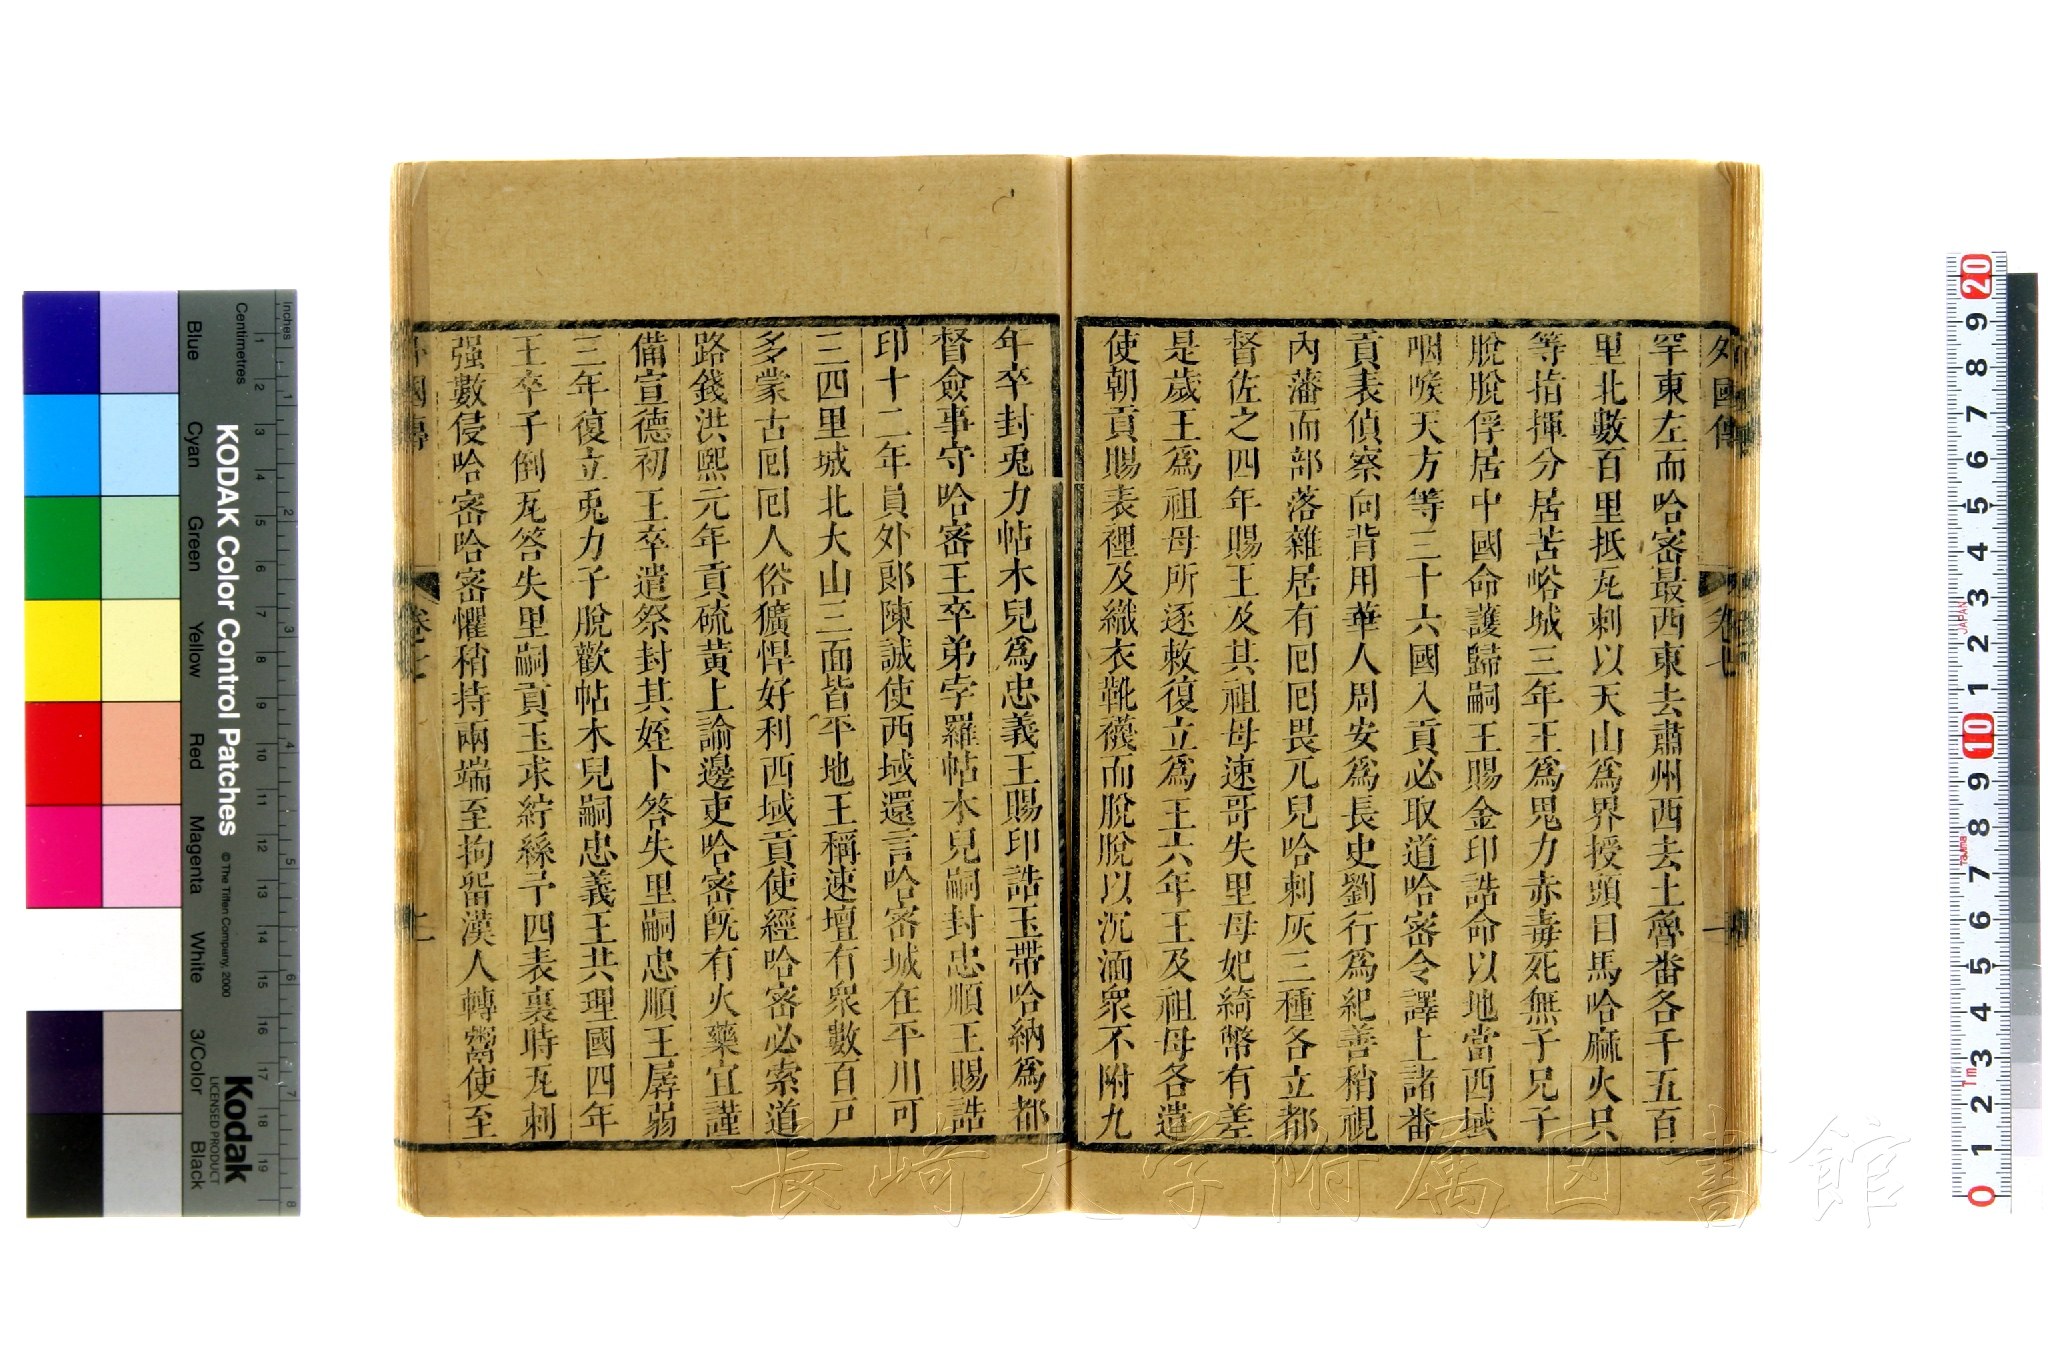 外國傳
卷七
罕東左而哈密最西東去肅州西去土魯番各千五百
里北數百里抵瓦剌以天山爲界授頭目馬哈麻火只
等指揮分居苦峪城三年王爲鬼力赤毒死無子兄子
脫脫俘居中國命護歸嗣王賜金印誥命以地當西域
咽喉天方等三十六國入貢必取道哈密令譯上諸番
貢表偵察向背用華人周安爲長史劉行爲紀善稍視
內藩而部落雜居有回回畏兀兒哈剌灰三種各立都
督佐之四年賜王及其祖母速哥失里母妃綺幣有差
是歲王爲祖母所逐敕復立爲王六年王及祖母各遣
使朝貢賜表裡及織衣靴襪而脫脫以沉湎衆不附九
年卒封兎力帖木兒爲忠義王賜印誥玉帶哈納爲都
督僉事守哈密王卒弟孛羅帖木兒嗣封忠順王賜誥
印十二年員外郎陳誠使西域還言哈密城在平川可
三四里城北大山三面皆平地王稱速壇有衆數百戶
多蒙古回回人俗獷悍好利西域貢使經哈密必索道
路錢洪熙元年貢硫黃上諭邊吏哈密旣有火藥宜謹
備宣德初王卒遣祭封其姪卜答失里嗣忠順王孱弱
三年復立兎力子脫歡帖木兒嗣忠義王共理國四年
王卒子倒瓦答失里嗣貢玉求紵絲予四表裏時瓦剌
强數侵哈密哈密懼稍持兩端至拘畱漢人轉鬻使至
外國傳
卷七
KODAK Color Control Patches
© The Tiffen Company, 2000
Kodak
LICENSED PRODUCT
Inches
Centimetres
Blue
Cyan
Green
Yellow
Red
Magenta
White
3/Color
Black
JAPAN
Tajima
1m
長崎大学附属図書館